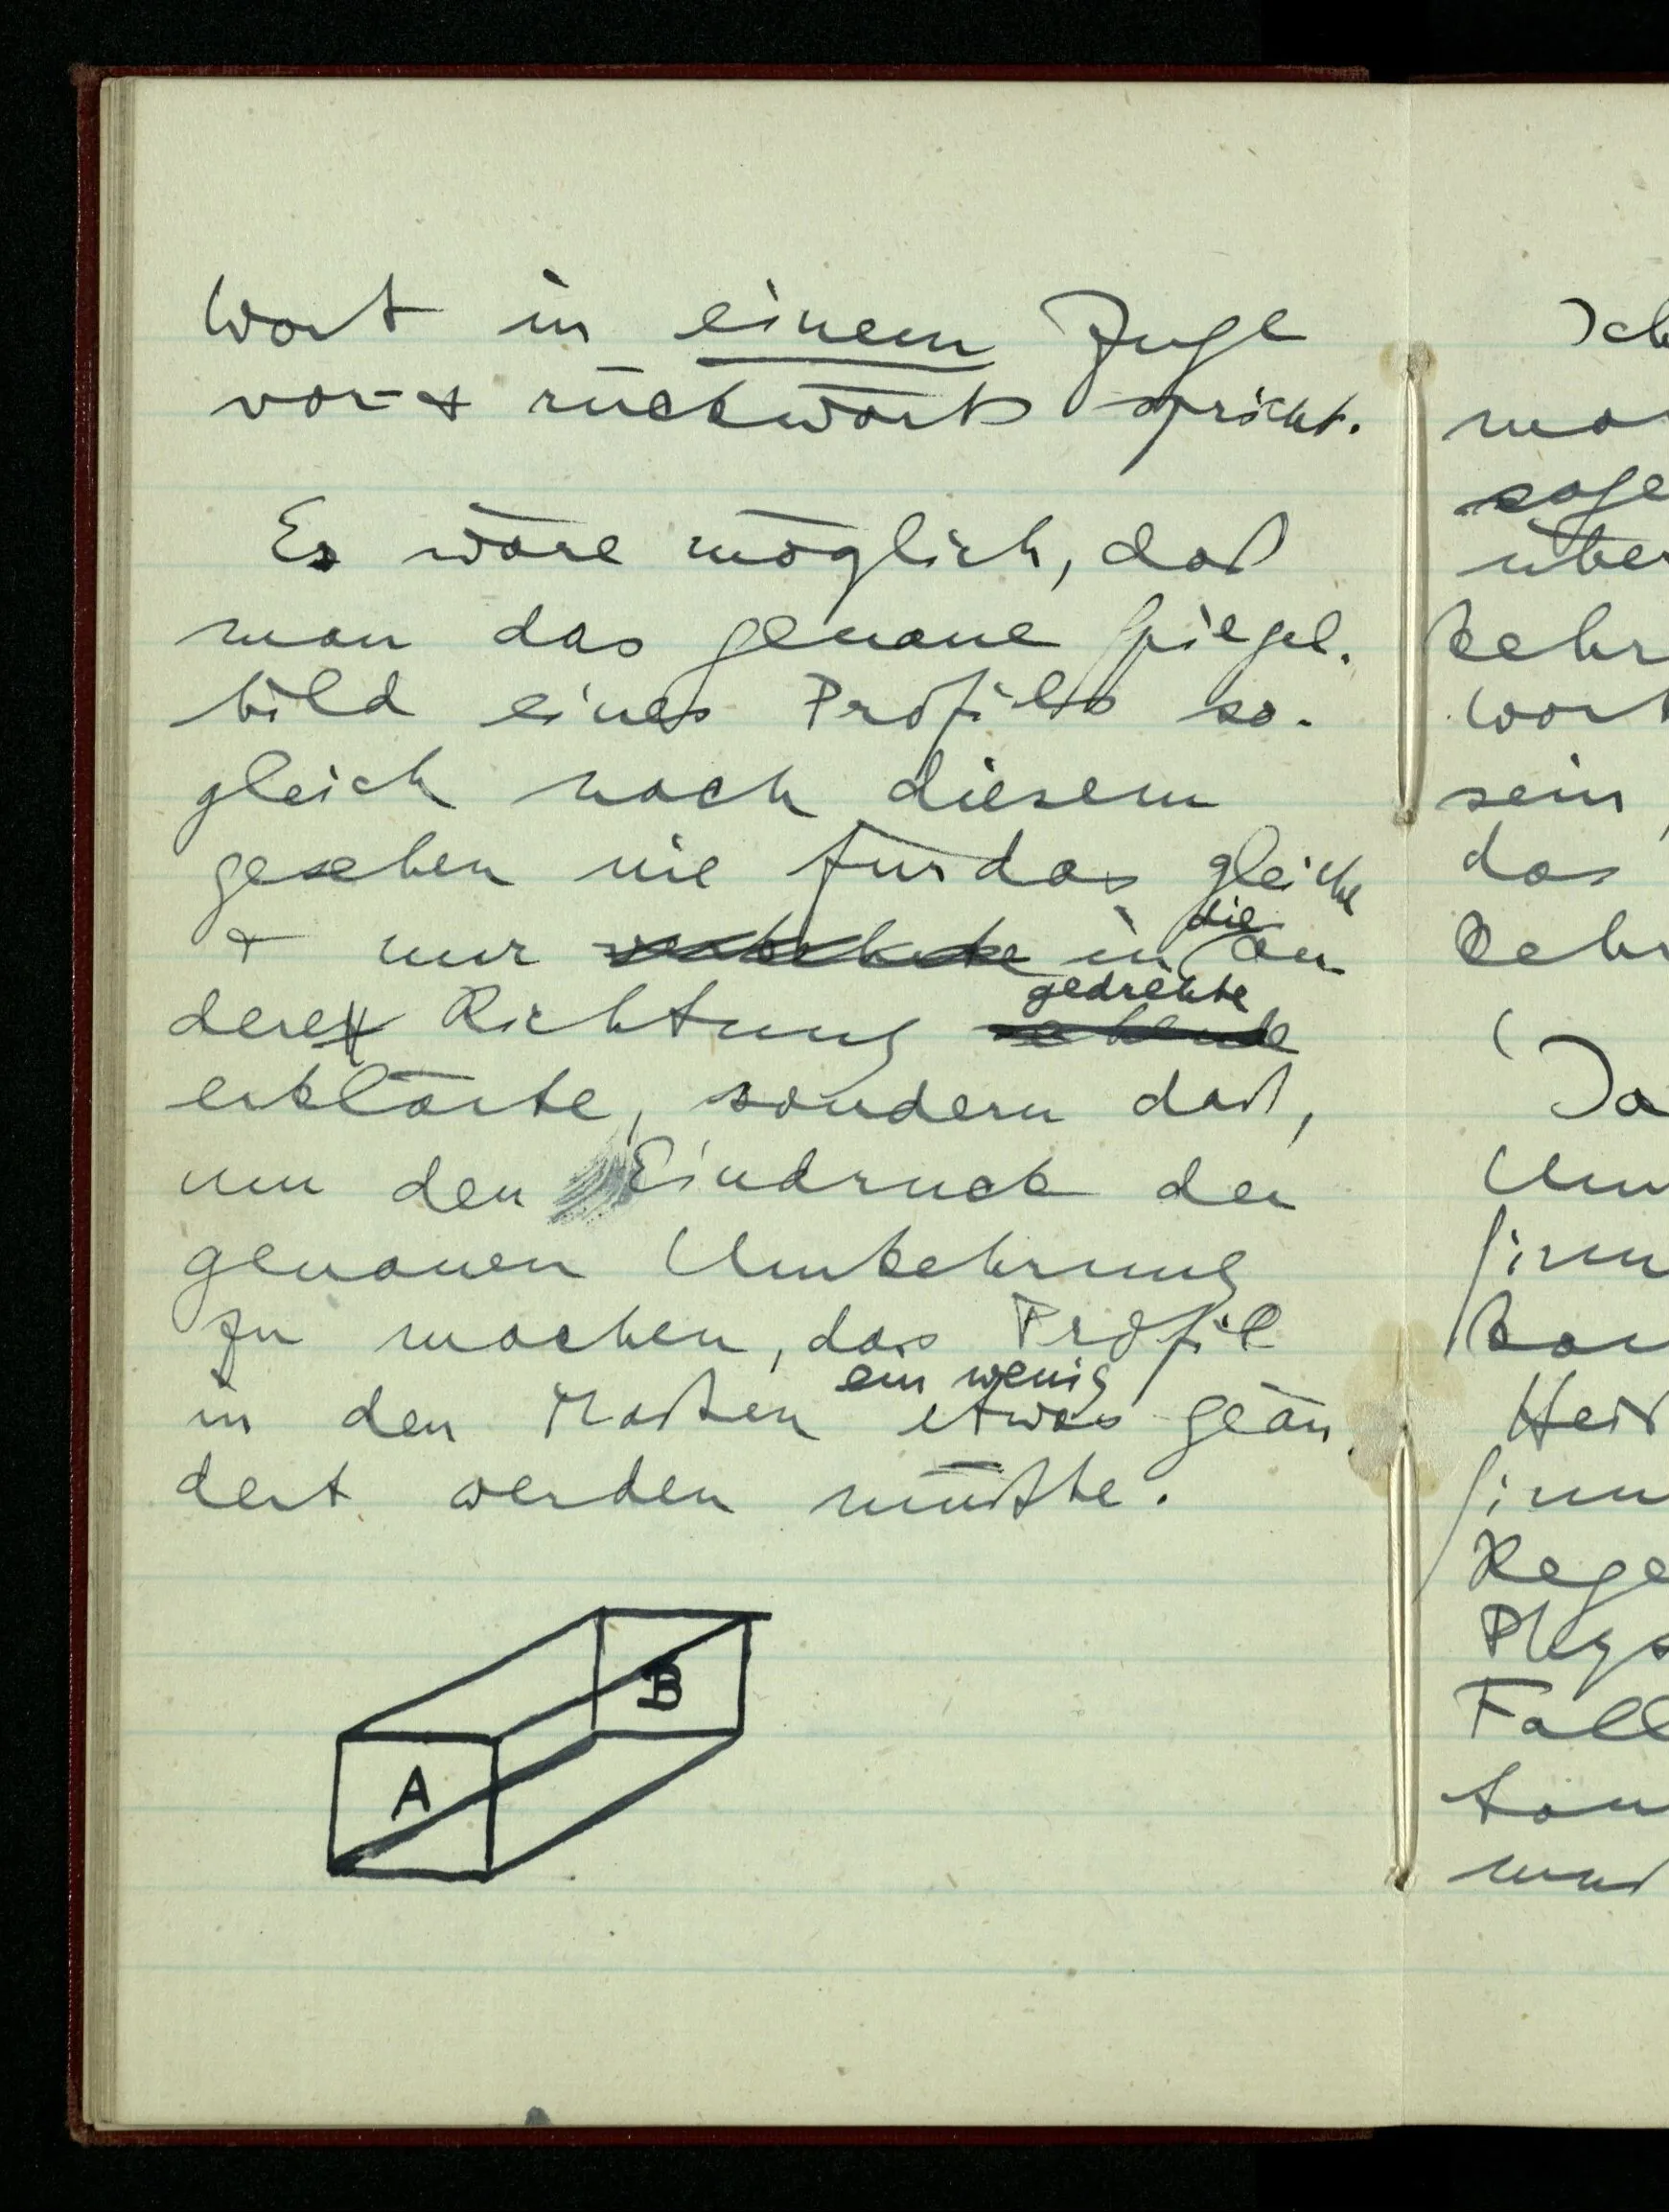 Wort in einem Zuge
vor- & rückwärts spricht.
Es wäre möglich, daß
man das genaue Spiegel-
bild eines Profils so-
gleich nach diesem
gesehen nie für das gleiche
& nur in die an-
dere Richtung gedrehte
erklärte, sondern daß,
um den Eindruck der
genauen Umkehrung
zu machen, das Profil
in den Maßen ein wenig etwas geän-
dert werden müßte.
A
B
Ich
sage
über
kehr
Wort
sein,
das
kehr
Da
Um
Regel
Phys
Fall